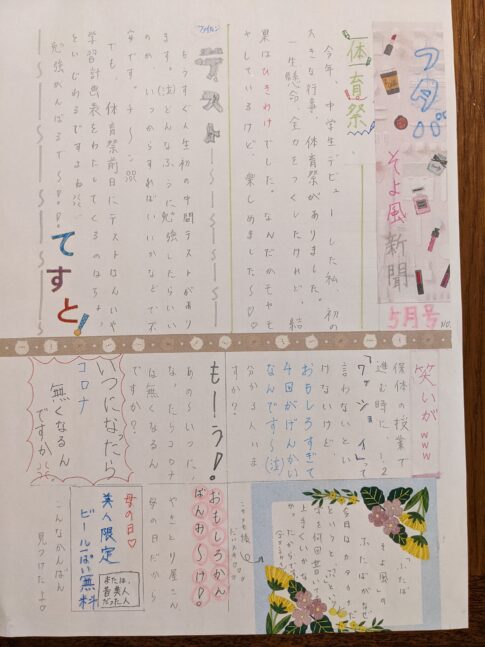 フタバ
そよ風新聞
5月号
NO.
体育祭
今年、中学生デビューした私、初の
大きな行事、体育祭がありました。
一生懸命、全力をつくしたけれど、結
果はひきわけでした。なんだかモヤモ
ヤしているけど、楽しめました〜♡
ファイルン
テスト
もうすぐ人生初の中間テストがあり
ます。(泣)どんなふうに勉強したらいい
のか、いつからすればいいかなどで不
安です。チーン
でも、体育祭前日にテストはんいや
学習計画表をわたしてくるのはちょっ
といじわるですよね
勉強がんばるぞ〜
てすと!
笑いが www
保体の授業で
進む時に、1、2
「ワッショイ」って
言わないとい
けないけど
おもしろすぎて
4回がげんかい
なんです〜(泣)
分かる人いま
すか?
も〜う!
あの〜、いつに
なったらコロナ
は無くなるん
ですか?
いつになったら
コロナ
無くなるん
ですか
「ふたば
そよ風」の
ふたばが
今月はカタカナだ
おもしろかん
ばんみ〜け!
やきとり屋さん
母の日だから
母の日♡
美人限定
ビールいっぱい無料
または、
昔美人
だった人
こんなかんばん
見つけた!